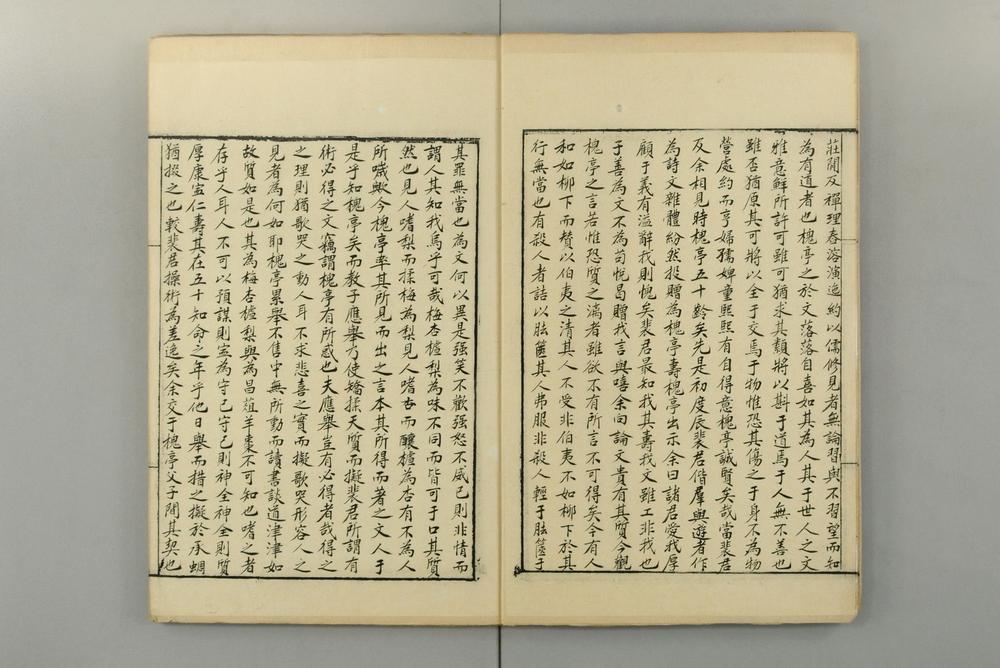 莊閒及禪理春溶演迤約以儒修見者無論習與不習望而知
為有道者也槐亭之於文落落自喜如其為人其于世人之文
雅意鮮所許可雖可猶求其類將以斟于道焉于人無不善也
雖否猶原其可將以全于交焉于物惟恐其傷之于身不為物
營處約而亨婦孺婢童熙熙有自得意槐亭誠賢矣哉當裴君
及余相見時槐亭五十齡矣先是初度辰裴君偕羣與遊者作
為詩文雜體紛然投贈為槐亭壽槐亭出示余曰諸君愛我厚
顧于義有溢辭我則愧矣裴君最知我其壽我文雖工非我也
于善為文不為苟悅曷贈我言與嘻余向論文貴有其質今觀
槐亭之言若惟恐質之漓者雖欲不有所言不可得矣今有人
和如柳下而贊以伯夷之清其人不受非伯夷不如柳下於其
行無當也有殺人者詰以胠篋其人弗服非殺人輕于胠篋于
其罪無當也為文何以異是强笑不歡强怒不威已則非情而
謂人其知我焉乎可哉梅杏樝梨為味不同而皆可于口其質
然也見人嗜梨而揉梅為梨見人嗜杏而釀樝為杏有不為人
所嘰歟今槐亭率其所見而出之言本其所得而著之文人于
是乎知槐亭矣而教子應舉方使矯揉天質而擬裴君所謂有
術必得之文竊謂槐亭有所惑也夫應舉豈有必得者哉得之
之理則猶歌哭之動人耳不求悲喜之實而擬歌哭形容人之
見者為何如耶槐亭累舉不售中無所動而讀書談道津津如
故質如是也其為梅杏樝梨與為昌菹羊棗不可知也嗜之者
存乎人耳人不可以預謀則寧為守己守己則神全神全則質
厚康寧仁壽其在五十知命之年乎他日舉而措之擬於承蜩
猶掇之也較裴君操術為差逸矣余交于槐亭父子閒其契也